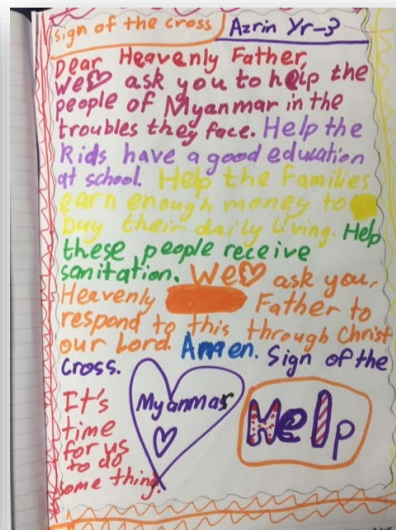 Sign of the cross Azrin Yr-3
Dear Heavenly Father,
We ask you to help the
people of Myanmar in the
troubles they face. Help the
kids have a good education
at school. Help the families
earn enough money to
buy their daily living. Help
these people receive
sanitation. We ask you,
Heavenly Father to
respond to this through Christ
our Lord. Amen. Sign of the
Cross.
It's
time
for us
to do
some thing.
Myanmar
Help